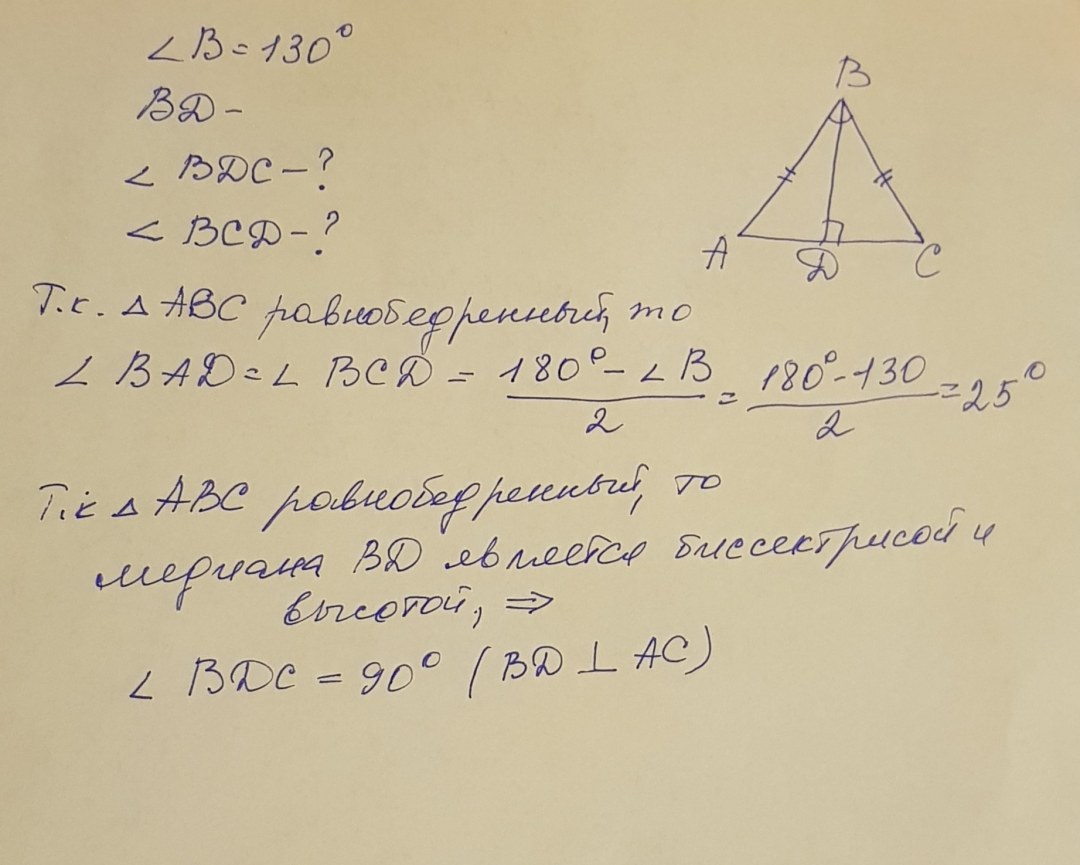 ∠B=130°
BD-
∠BDC-?
∠BCD-?
B
A
D
C
Т.к. △ABC равнобедренный, то
∠BAD=∠BCD = (180°-∠B)/2 = (180°-130)/2 = 25°
Т.к △ABC равнобедренный, то
медиана BD является биссектрисой и
высотой, ⇒
∠BDC = 90° (BD⊥AC)